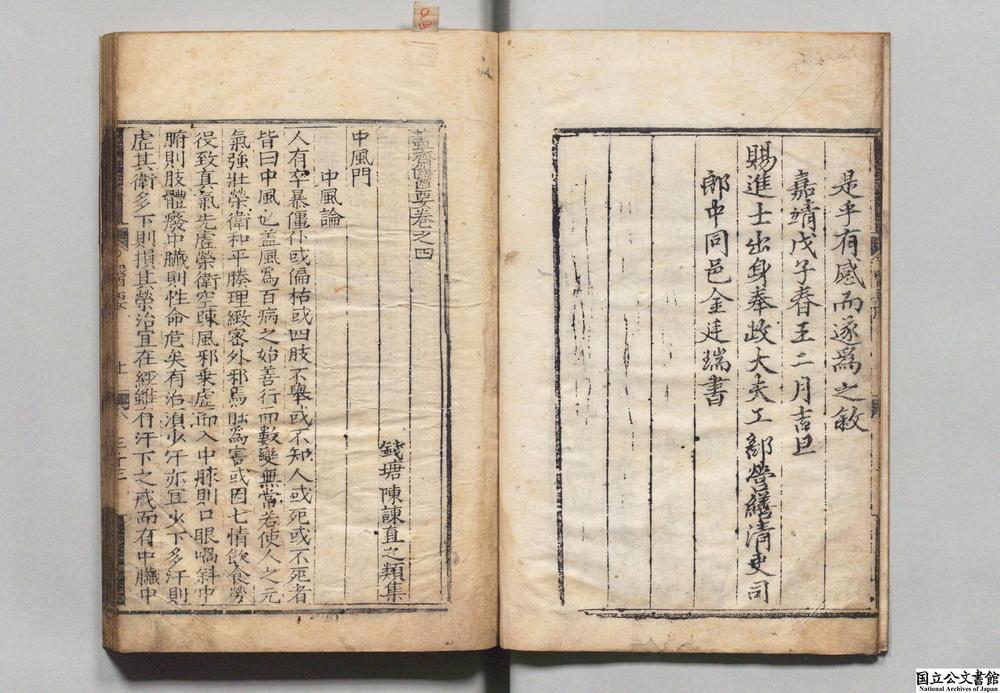 是乎有感而遂為之敘
嘉靖戊子春王二月吉旦
賜進士出身奉政大夫工部營繕清吏司
郎中同邑金廷瑞書
藎齋醫要卷之四
錢塘陳諫直之類集
中風門
中風論
人有卒暴僵仆或偏枯或四肢不舉或不知人或死或不死者
皆曰中風也盖風爲百病之始善行而數變無常若使人之元
氣強壯榮衛和平腠理緻密外邪焉能爲害或因七情飲食勞
役致真氣先虛榮衛空疎風邪乗虛而入中脉則口眼喎斜中
腑則肢體癈中臟則性命危矣有治湏少汗亦宜少下多汗則
虛其衛多下則損其榮治宜在經雖有汗下之戒而有中臟中
醫要
国立公文書館
National Archives of Japan